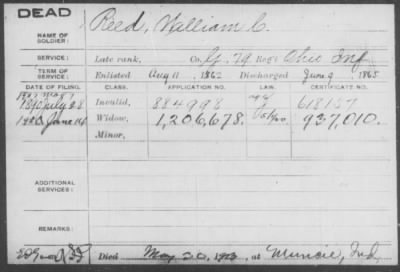 DEAD
NAME OF SOLDIER: Reed, William C.
SERVICE: Late rank, Co. G. 79 Reg't Ohio Inf
TERM OF SERVICE: Enlisted Aug 11 1862 Discharged June 9 1865
DATE OF FILING. CLASS. APPLICATION NO. LAW. CERTIFICATE NO.
1890 July 28 Invalid, 884998 618157
June Widow, 1,206,678. 937,010.
Minor,
ADDITIONAL SERVICES:
REMARKS:
Died May 20, 1923, at Muncie, Ind